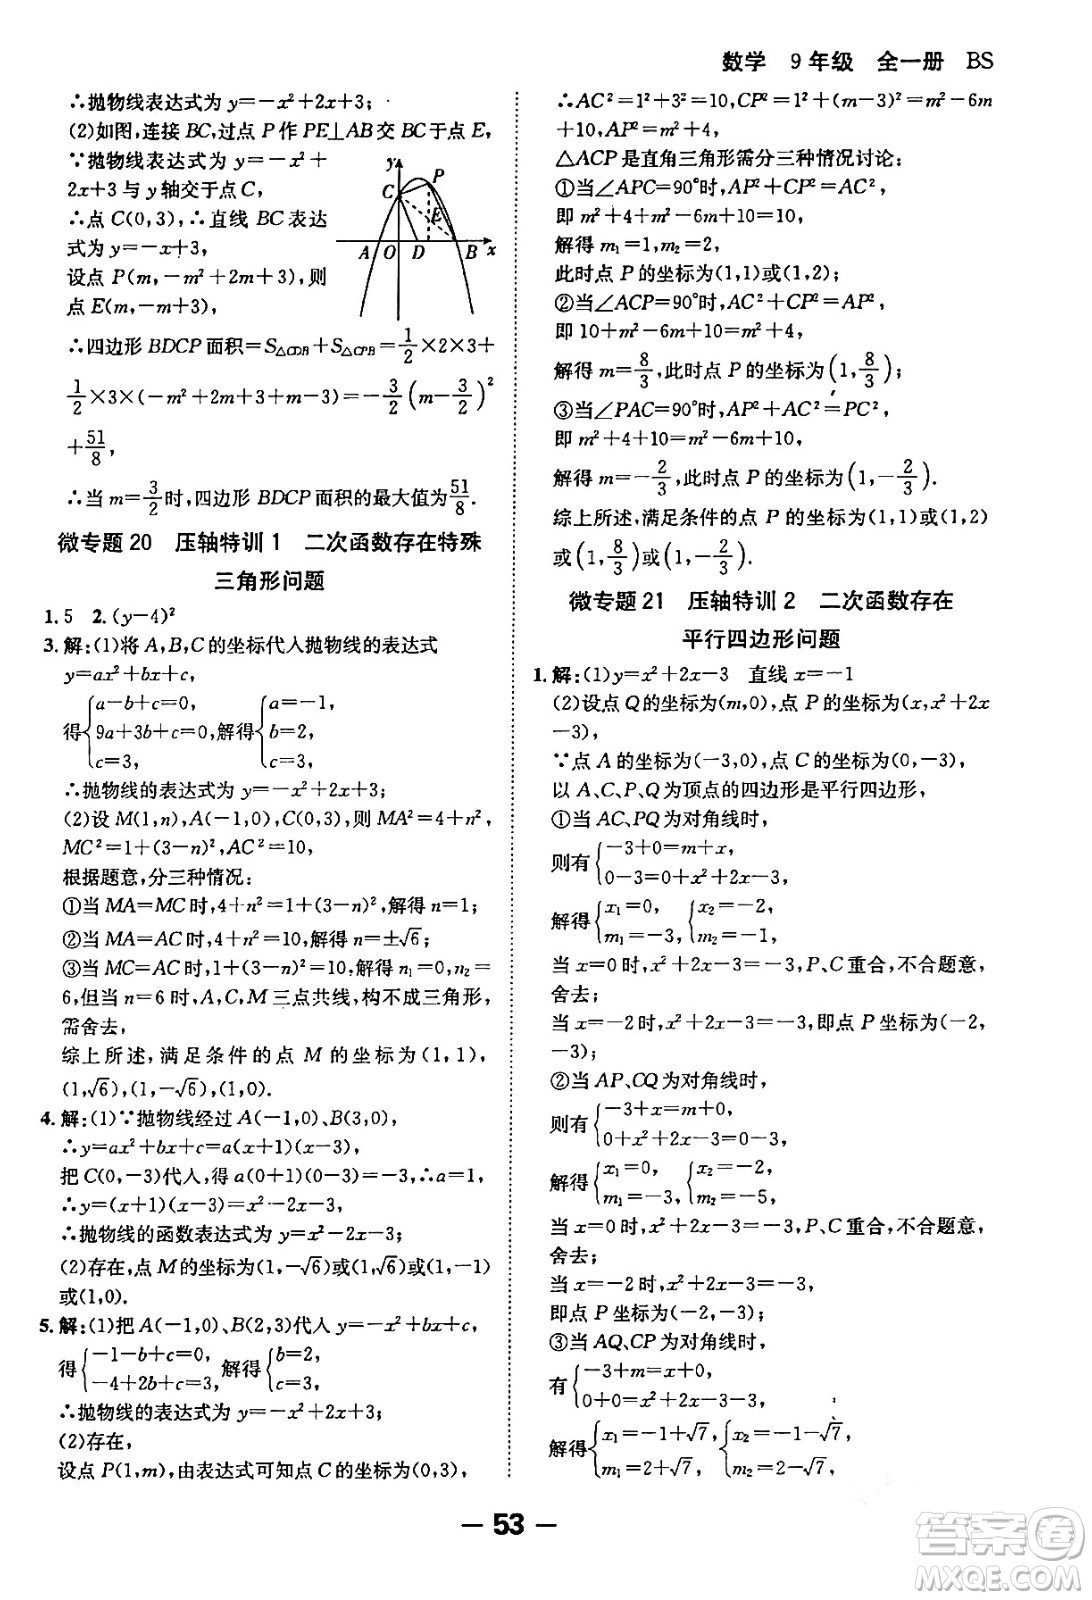 数学 9年级 全一册 BS
∴抛物线表达式为 y=-x²+2x+3;
(2)如图,连接 BC,过点 P 作 PE⊥AB 交 BC 于点 E,
∵抛物线表达式为 y=-x²+
2x+3 与 y 轴交于点 C,
∴点 C(0,3),∴直线 BC 表达
式为 y=-x+3,
设点 P(m,-m²+2m+3),则
点 E(m,-m+3),
y
P
C
E
A O D B x
∴四边形 BDCP 面积=S△CDB+S△CPB=1/2×2×3+
1/2×3×(-m²+2m+3+m-3)=-3/2(m-3/2)²
+51/8,
∴当 m=3/2时,四边形 BDCP 面积的最大值为51/8.
微专题 20 压轴特训 1 二次函数存在特殊
三角形问题
1.5 2.(y-4)²
3.解:(1)将 A,B,C 的坐标代人抛物线的表达式
y=ax²+bx+c,
得{a-b+c=0, 9a+3b+c=0, c=3, 解得{a=-1, b=2, c=3,
∴抛物线的表达式为 y=-x²+2x+3;
(2)设 M(1,n),A(-1,0),C(0,3),则 MA²=4+n²,
MC²=1+(3-n)²,AC²=10,
根据题意,分三种情况:
①当 MA=MC 时,4+n²=1+(3-n)²,解得 n=1;
②当 MA=AC 时,4+n²=10,解得 n=±√6;
③当 MC=AC 时,1+(3-n)²=10,解得 n₁=0,n₂=
6,但当 n=6 时,A,C,M 三点共线,构不成三角形,
需舍去,
综上所述,满足条件的点 M 的坐标为(1,1),
(1,√6),(1,-√6),(1,0).
4.解:(1)∵抛物线经过 A(-1,0)、B(3,0),
∴y=ax²+bx+c=a(x+1)(x-3),
把 C(0,-3)代人,得 a(0+1)(0-3)=-3,∴a=1,
∴y=(x+1)(x-3)=x²-2x-3,
∴抛物线的函数表达式为 y=x²-2x-3;
(2)存在,点 M 的坐标为(1,-√6)或(1,√6)或(1,-1)
或(1,0).
5.解:(1)把 A(-1,0)、B(2,3)代人 y=-x²+bx+c,
得{-1-b+c=0, -4+2b+c=3, 解得{b=2, c=3,
∴抛物线的表达式为 y=-x²+2x+3;
(2)存在,
设点 P(1,m),由表达式可知点 C 的坐标为(0,3),
∴AC²=1²+3²=10,CP²=1²+(m-3)²=m²-6m
+10,AP²=m²+4,
△ACP 是直角三角形需分三种情况讨论:
①当∠APC=90°时,AP²+CP²=AC²,
即 m²+4+m²-6m+10=10,
解得 m₁=1,m₂=2,
此时点 P 的坐标为(1,1)或(1,2);
②当∠ACP=90°时,AC²+CP²=AP²,
即 10+m²-6m+10=m²+4,
解得 m=8/3,此时点 P 的坐标为(1,8/3);
③当∠PAC=90°时,AP²+AC²=PC²,
即 m²+4+10=m²-6m+10,
解得 m=-2/3,此时点 P 的坐标为(1,-2/3).
综上所述,满足条件的点 P 的坐标为(1,1)或(1,2)
或(1,8/3)或(1,-2/3).
微专题 21 压轴特训 2 二次函数存在
平行四边形问题
1.解:(1)y=x²+2x-3 直线 x=-1
(2)设点 Q 的坐标为(m,0),点 P 的坐标为(x,x²+2x
-3),
∵点 A 的坐标为(-3,0),点 C 的坐标为(0,-3),
以 A、C、P、Q 为顶点的四边形是平行四边形,
①当 AC,PQ 为对角线时,
则有{-3+0=m+x, 0-3=0+x²+2x-3,
解得{x₁=0, m₁=-3, {x₂=-2, m₂=-1,
当 x=0 时,x²+2x-3=-3,P、C 重合,不合题意,
舍去;
当 x=-2 时,x²+2x-3=-3,即点 P 坐标为(-2,
-3);
②当 AP、CQ 为对角线时,
则有{-3+x=m+0, 0+x²+2x-3=0-3,
解得{x₁=0, m₁=-3, {x₂=-2, m₂=-5,
当 x=0 时,x²+2x-3=-3,P、C 重合,不合题意,
舍去;
当 x=-2 时,x²+2x-3=-3,
即点 P 坐标为(-2,-3);
③当 AQ、CP 为对角线时,
有{-3+m=x+0, 0+0=x²+2x-3-3,
解得{x₁=-1+√7, m₁=2+√7, {x₂=-1-√7, m₂=2-√7,
— 53 —
答案卷
MXQE.COM